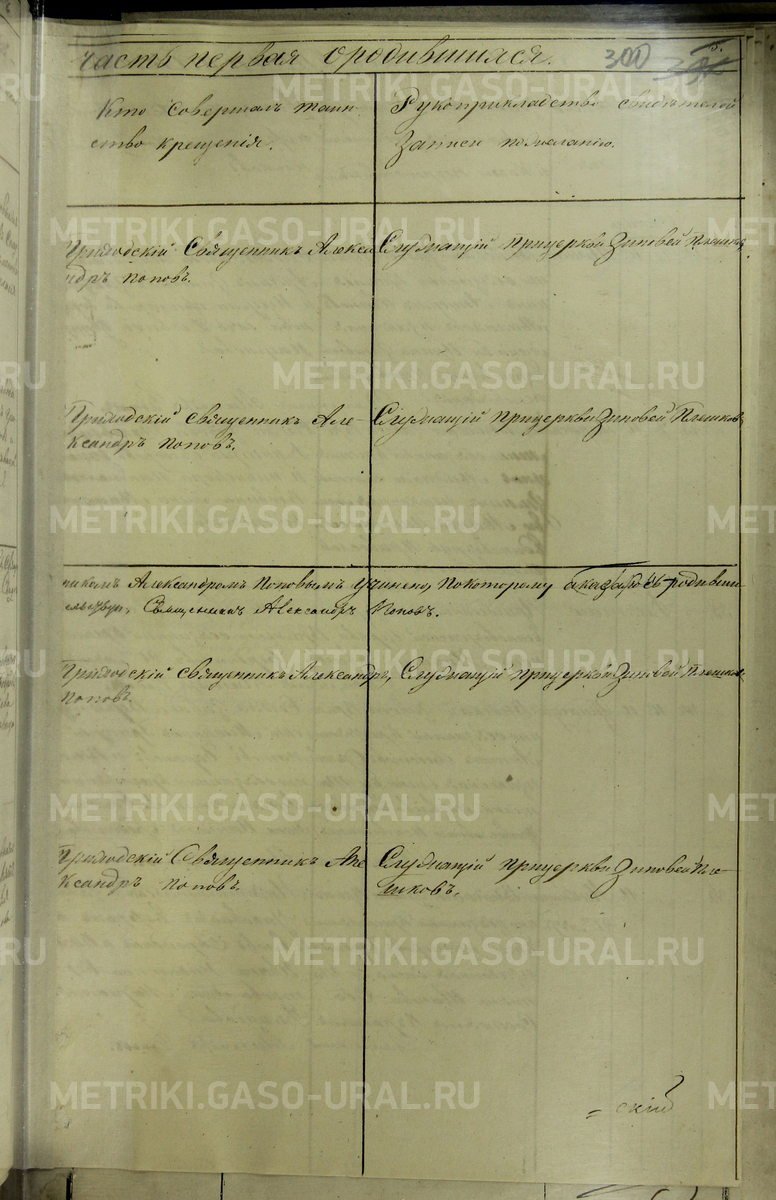 часть первая о родившихся. 300
Кто совершалъ таин-
ство крещенія.
Рукоприкладство свидѣтелей
записи по желанію.
Приходскій Священникъ Алекса-
ндръ Поповъ.
Служащій при церкви Зиновей Плешков
Приходскій священникъ Але-
ксандръ Поповъ.
Служащій при церкви Зиновей Плешков
никомъ Александромъ Поповымъ учинено, по которому оказалось родивши
Священникъ Александръ Поповъ.
Приходскій священникъ Александръ,
Поповъ
Служащій при церкви Зиновей Плешков
Приходскій Священникъ Але
ксандръ Поповъ.
Служащій при церкви Зиновей Пле-
шковъ.
= скій
METRIKI.GASO-URAL.RU